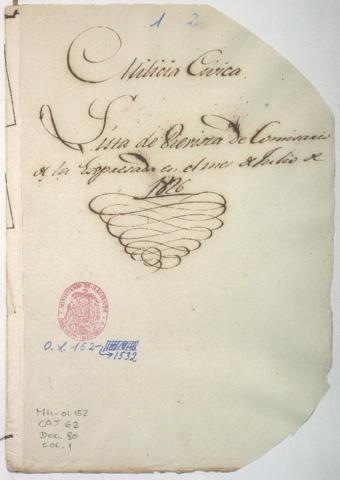 1 2
Milicia Civica
Lista de Revista de Comisario
de la Expresada en el mes de Julio de
1826
MINISTERIO DE HACIENDA
O. L. 152
1532
MH-OL 152
CAJ 62
DOC. 80
FOL. 1